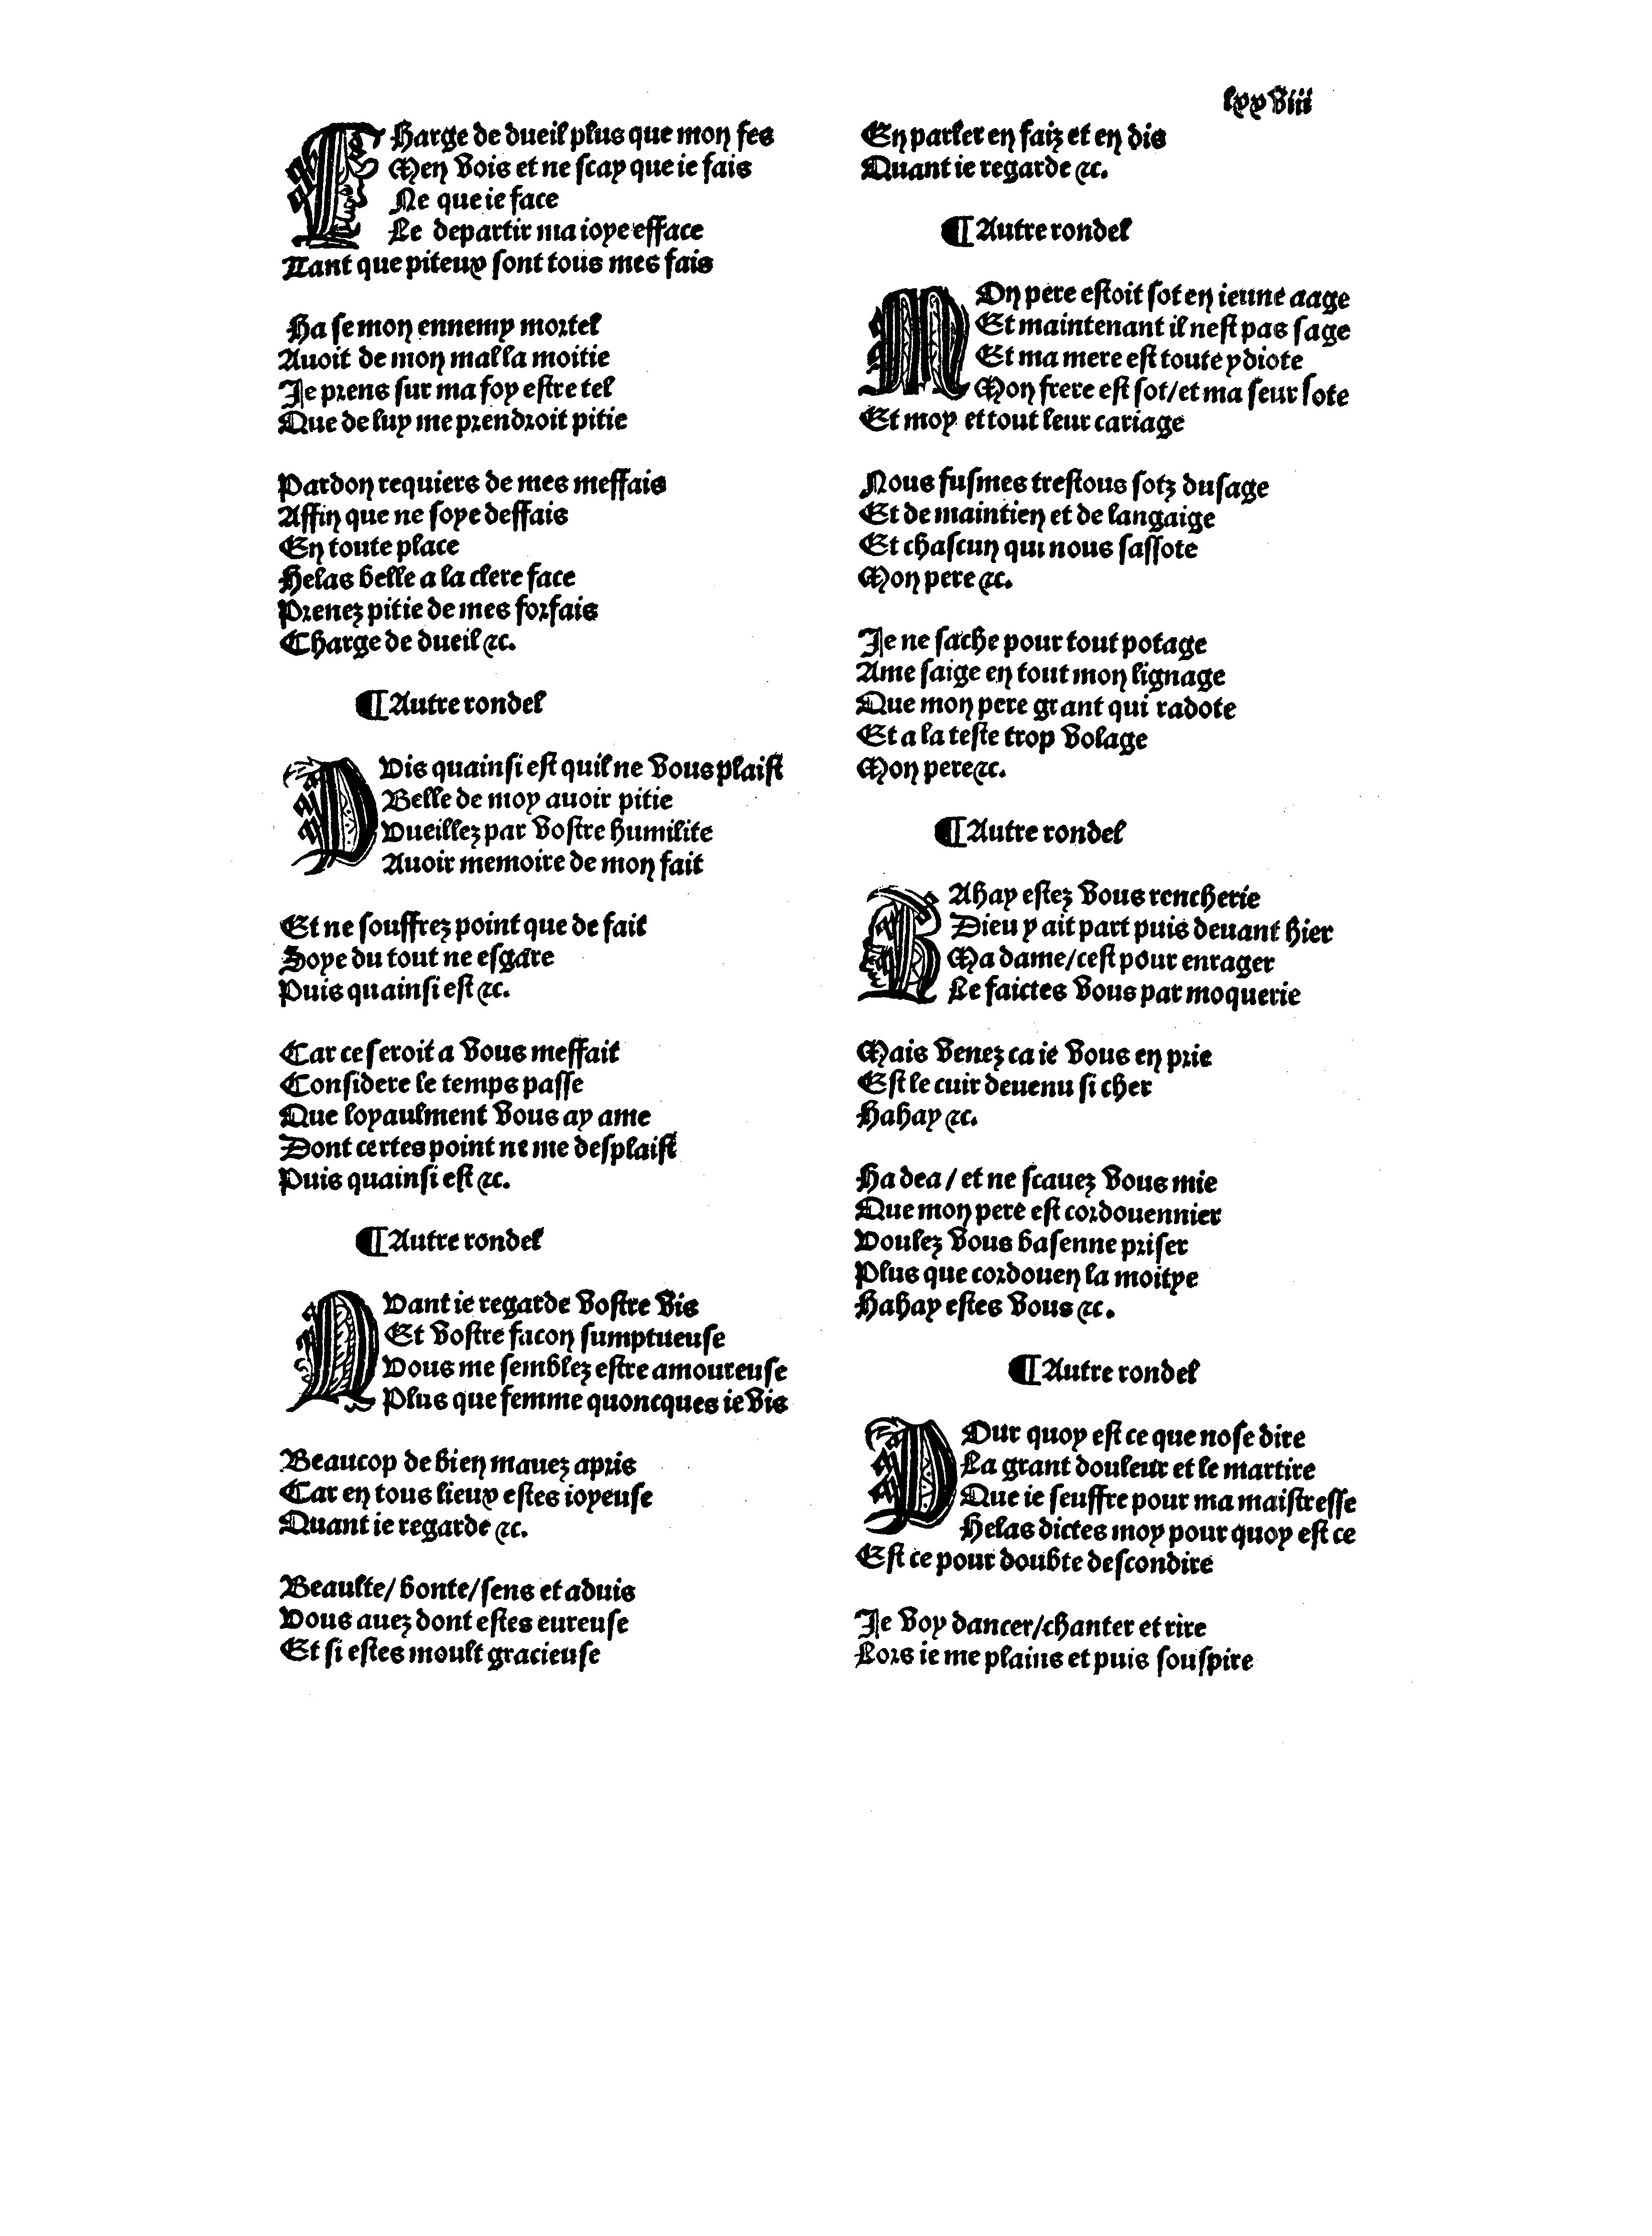 lxxviii
CHarge de dueil plus que mon fes
Men vois et ne scay que ie fais
Ne que ie face
Le departir ma ioye efface
Tant que piteux sont tous mes fais
Ha se mon ennemy mortel
Auoit de mon mal la moitie
Je prens sur ma foy estre tel
Que de luy me prendroit pitie
Pardon requiers de mes meffais
Affin que ne soye deffais
En toute place
Helas belle a la clere face
Prenez pitie de mes forfais
Charge de dueil &c.
¶ Autre rondel
PVis quainsi est quil ne vous plaist
Belle de moy auoir pitie
Vueillez par vostre humilite
Auoir memoire de mon fait
Et ne souffrez point que de fait
Soye du tout ne esgare
Puis quainsi est &c.
Car ce seroit a vous meffait
Considere le temps passe
Que loyaulment vous ay ame
Dont certes point ne me desplaist
Puis quainsi est &c.
¶ Autre rondel
QVant ie regarde vostre vis
Et vostre facon sumptueuse
Vous me semblez estre amoureuse
Plus que femme quoncques ie vis
Beaucop de bien mauez apris
Car en tous lieux estes ioyeuse
Quant ie regarde &c.
Beaulte/ bonte/ sens et aduis
Vous auez dont estes eureuse
Et si estes moult gracieuse
En parler en faiz et en dis
Quant ie regarde &c.
¶ Autre rondel
MOn pere estoit sot en ieune aage
Et maintenant il nest pas sage
Et ma mere est toute ydiote
Mon frere est sot/ et ma seur sote
Et moy et tout leur cariage
Nous fusmes trestous sotz dusage
Et de maintien et de langaige
Et chascun qui nous sassote
Mon pere &c.
Je ne sache pour tout potage
Ame saige en tout mon lignage
Que mon pere grant qui radote
Et a la teste trop volage
Mon pere &c.
¶ Autre rondel
HAhay estez vous rencherie
Dieu y ait part puis deuant hier
Ma dame/ cest pour enrager
Le faictes vous par moquerie
Mais venez ca ie vous en prie
Est le cuir deuenu si cher
Hahay &c.
Ha dea / et ne scauez vous mie
Que mon pere est cordouennier
Voulez vous basenne priser
Plus que cordouen la moitye
Hahay estes vous &c.
¶ Autre rondel
POur quoy est ce que nose dire
La grant douleur et le martire
Que ie seuffre pour ma maistresse
Helas dictes moy pour quoy est ce
Est ce pour doubte descondire
Je voy dancer/ chanter et rire
Lors ie me plains et puis souspire